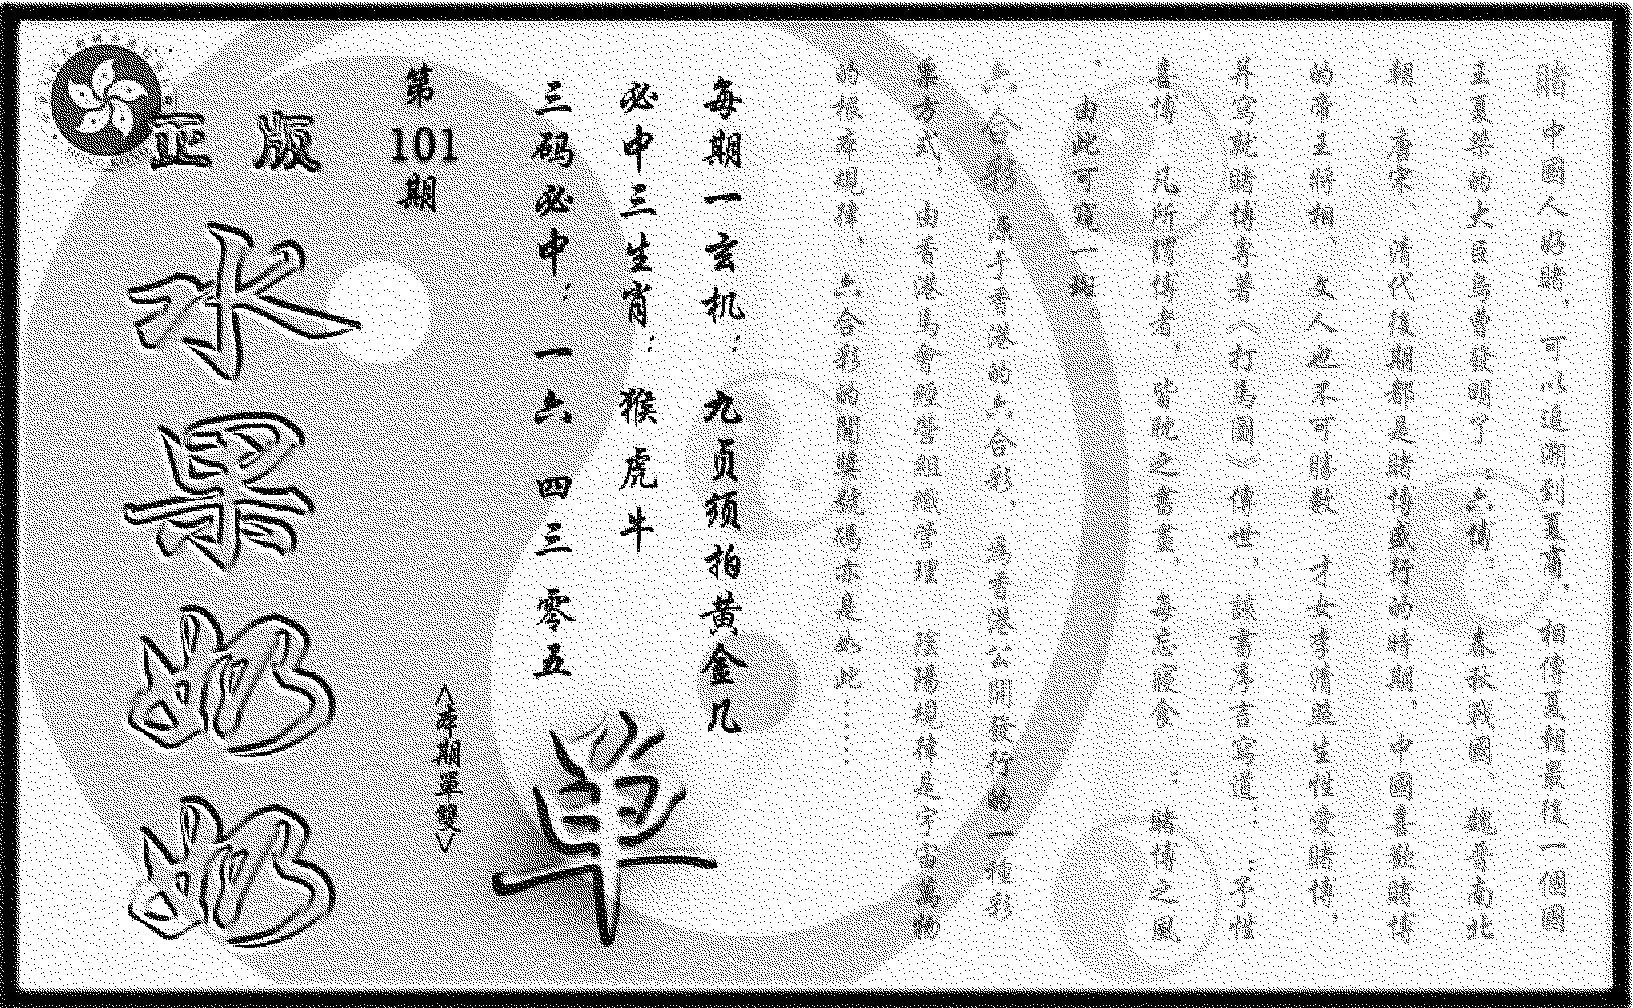 賭中國人好賭，可以追溯到夏商，相傳夏朝最後一個國
王夏桀的大臣烏曹發明了。六博，春秋戰國，魏晉南北
朝 唐宋 清代後期都是賭博盛行的時期，中國喜歡賭博
的帝王將相 文人也不可勝數 才女李清照生性愛賭博，
并寫就賭博專著《打馬圖》傳世，該書序言寫道：：予性
喜博 凡所謂博者，皆眈之書畫，每忘寢食 ： 賭博之風
，由此可窺一斑
六合彩 源于香港的六合彩，是香港公開發行的一種彩
票方式，由香港馬會經營組織管理 陰陽規律是宇宙萬物
的根本規律，六合彩的開獎號碼亦是如此……
每期一玄机：九贞颈拍黄金几
必中三生肖：猴虎牛
三码必中：一六 四三 零五
单
第101期
<本期單雙>
正版
水果奶奶